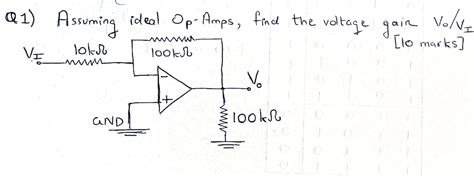 Q1) Assuming ideal Op-Amps, find the voltage gain Vo/VI
[10 marks]
VI 10kΩ 100kΩ
-
Vo
+
GND
100kΩ